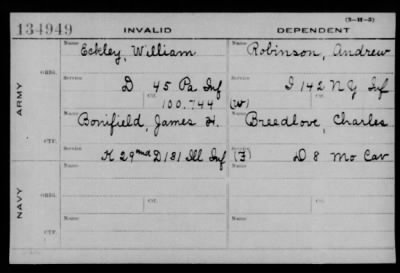 (3-H-3)
134949 INVALID DEPENDENT
Name Name
Eckley, William Robinson, Andrew
ORIG.
Service Service
D 45 Pa Inf I 142 N Y Inf
Ctf. Ctf.
100.744 (W)
ARMY
Name Name
Bonifield, James H. Breedlove Charles
CTF.
Service Service
K 29 nd D 131 Ill Inf (F) D. 8 Mo Cav
Name Name
ORIG.
Ctf. Ctf.
NAVY
Name Name
CTF.